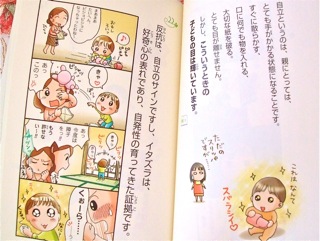 自立というのは、親にとっては、
とても手がかかる状態になることです。
すぐに散らかす。
口に何でも物を入れる。
大切な紙を破る。
とても目が離せません。
しかし、こういうときの
子どもの目は輝いています。
これは なんて
スバラシイ
ただの
ですが
反抗は、自立のサインですし、イタズラは、
好奇心の表れであり、自発性の育ってきた証拠です。
このっ
お世話
します
今度は
障子
くぉーら